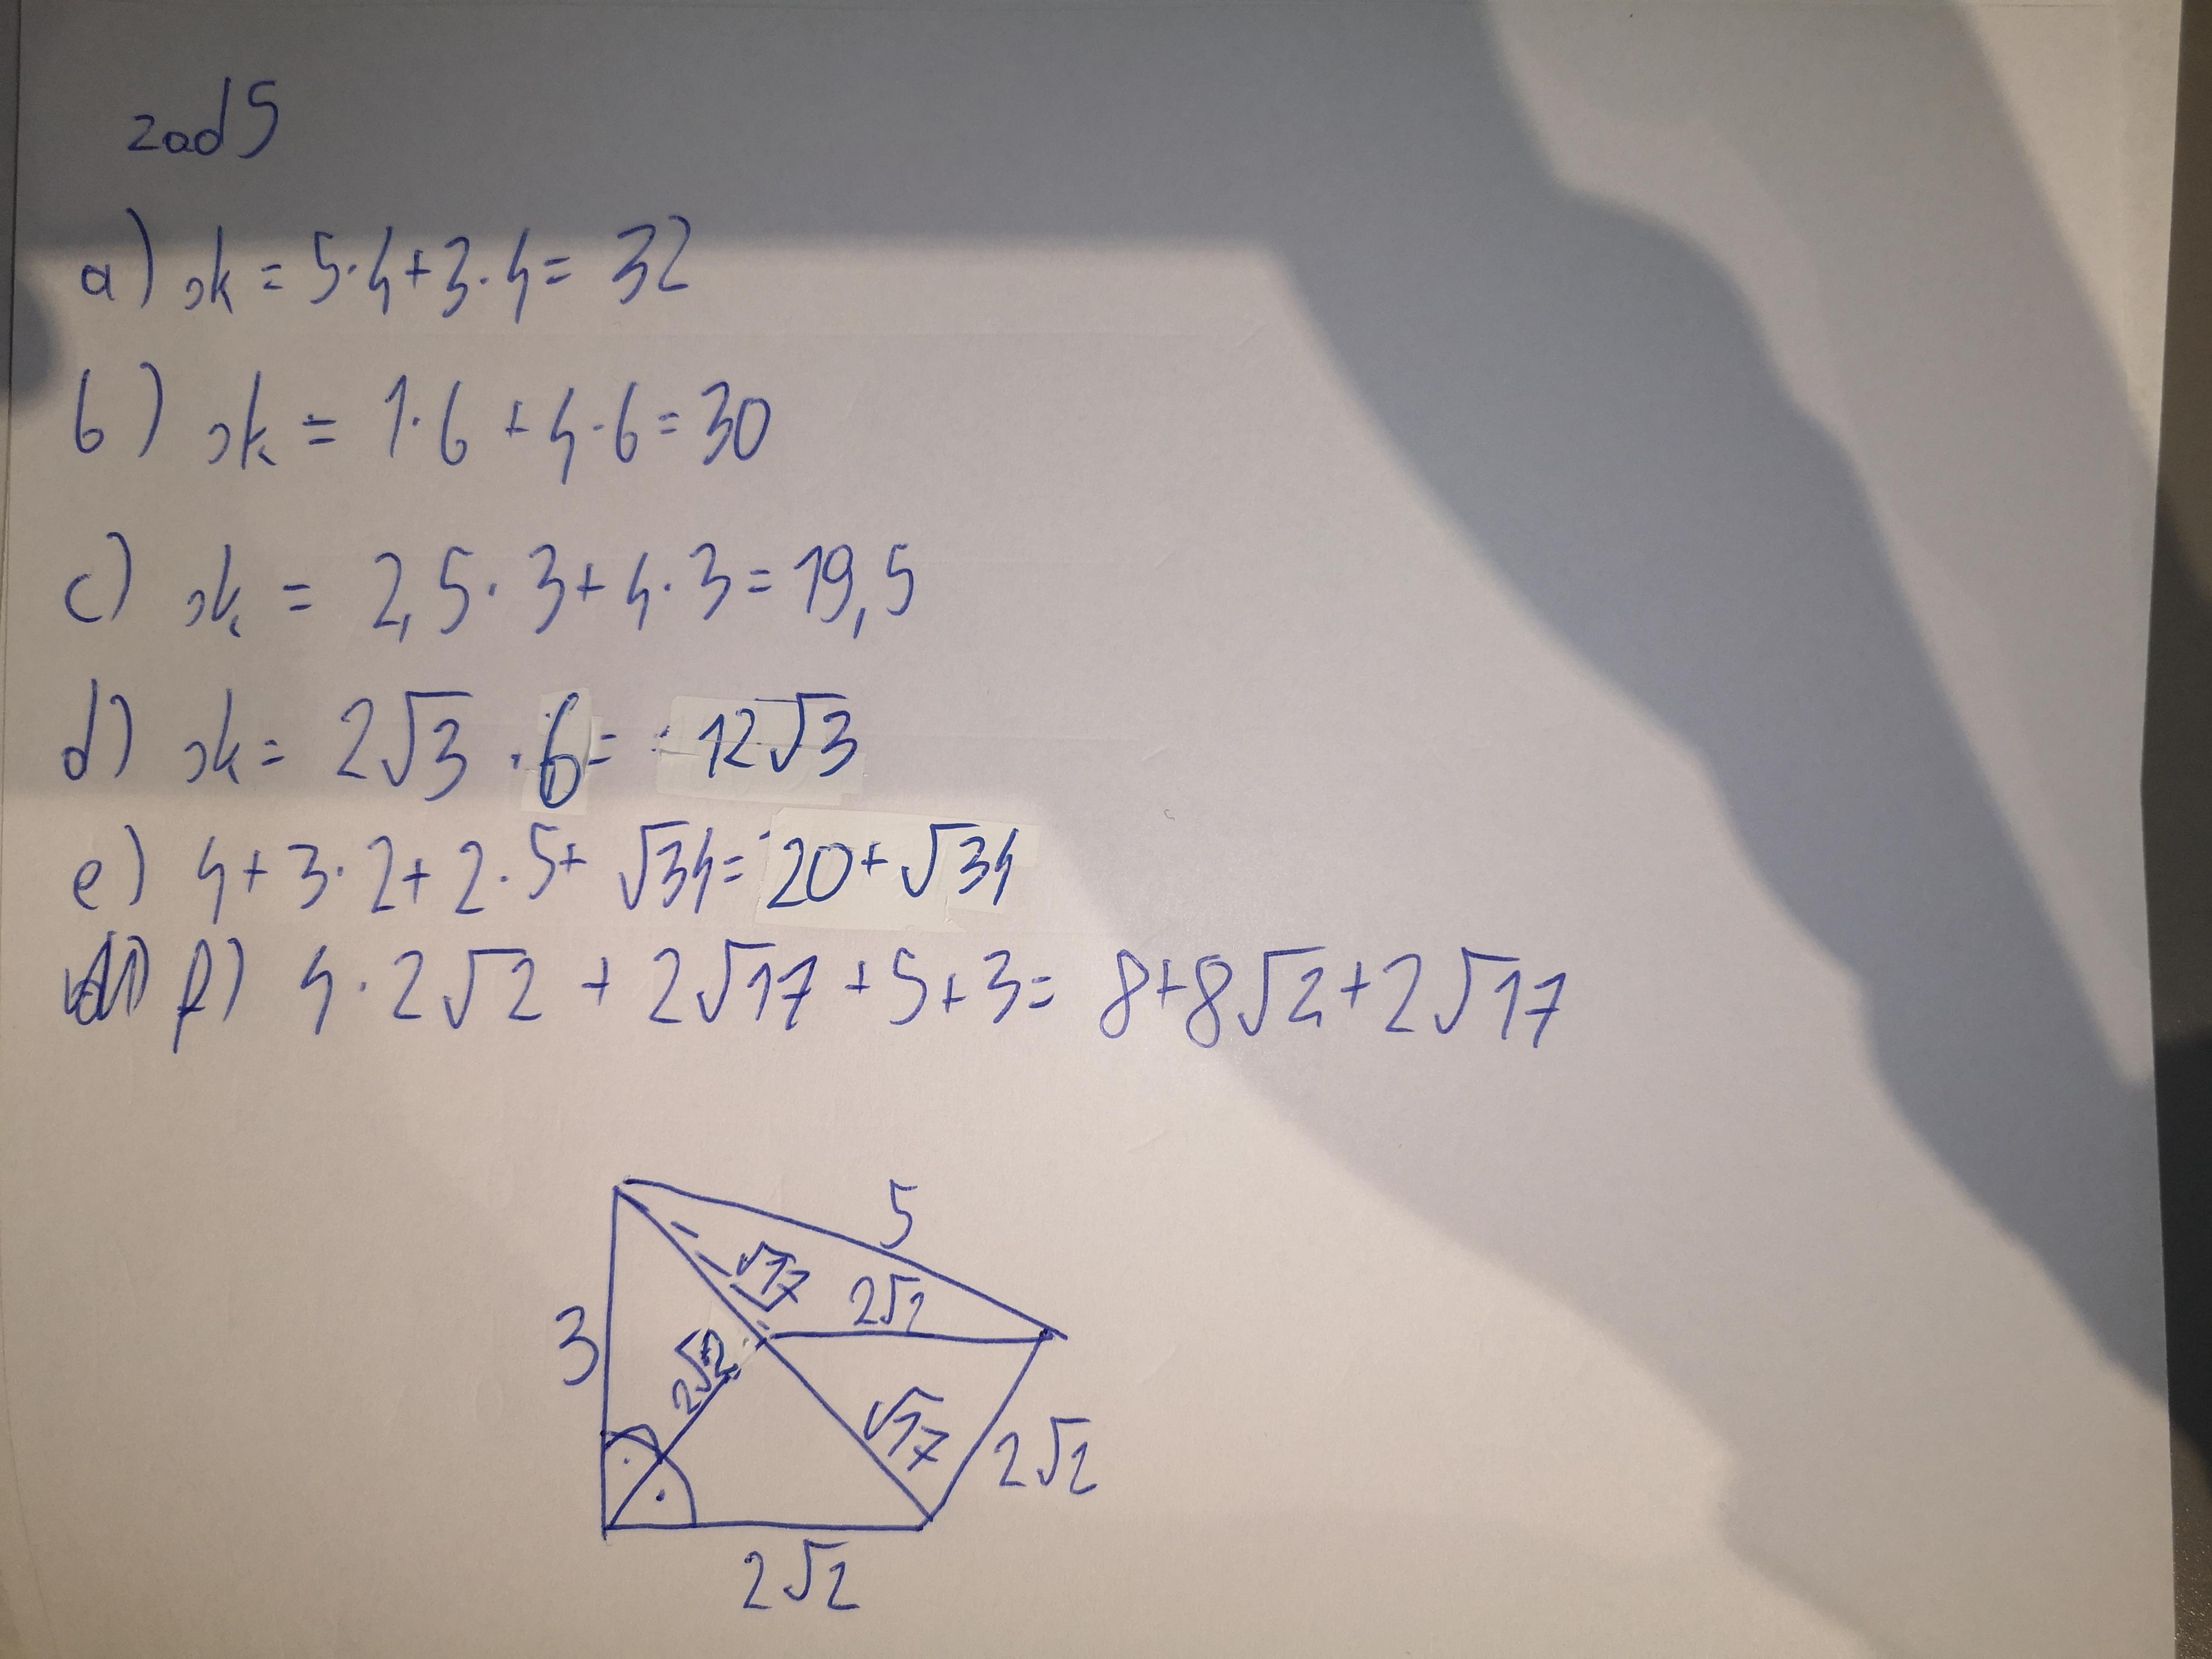 zad 5
a) sk = 5·4+3·4= 32
b) sk = 1·6 + 4·6=30
c) sk = 2,5·3+4·3=19,5
d) sk= 2√3 ·6= 12√3
e) 4+3·2+2·5+ √34= 20+√34
f) 4·2√2 + 2√17 +5+3= 8+8√2+2√17
5
√17
2√2
3
2√2
√17
2√2
2√2